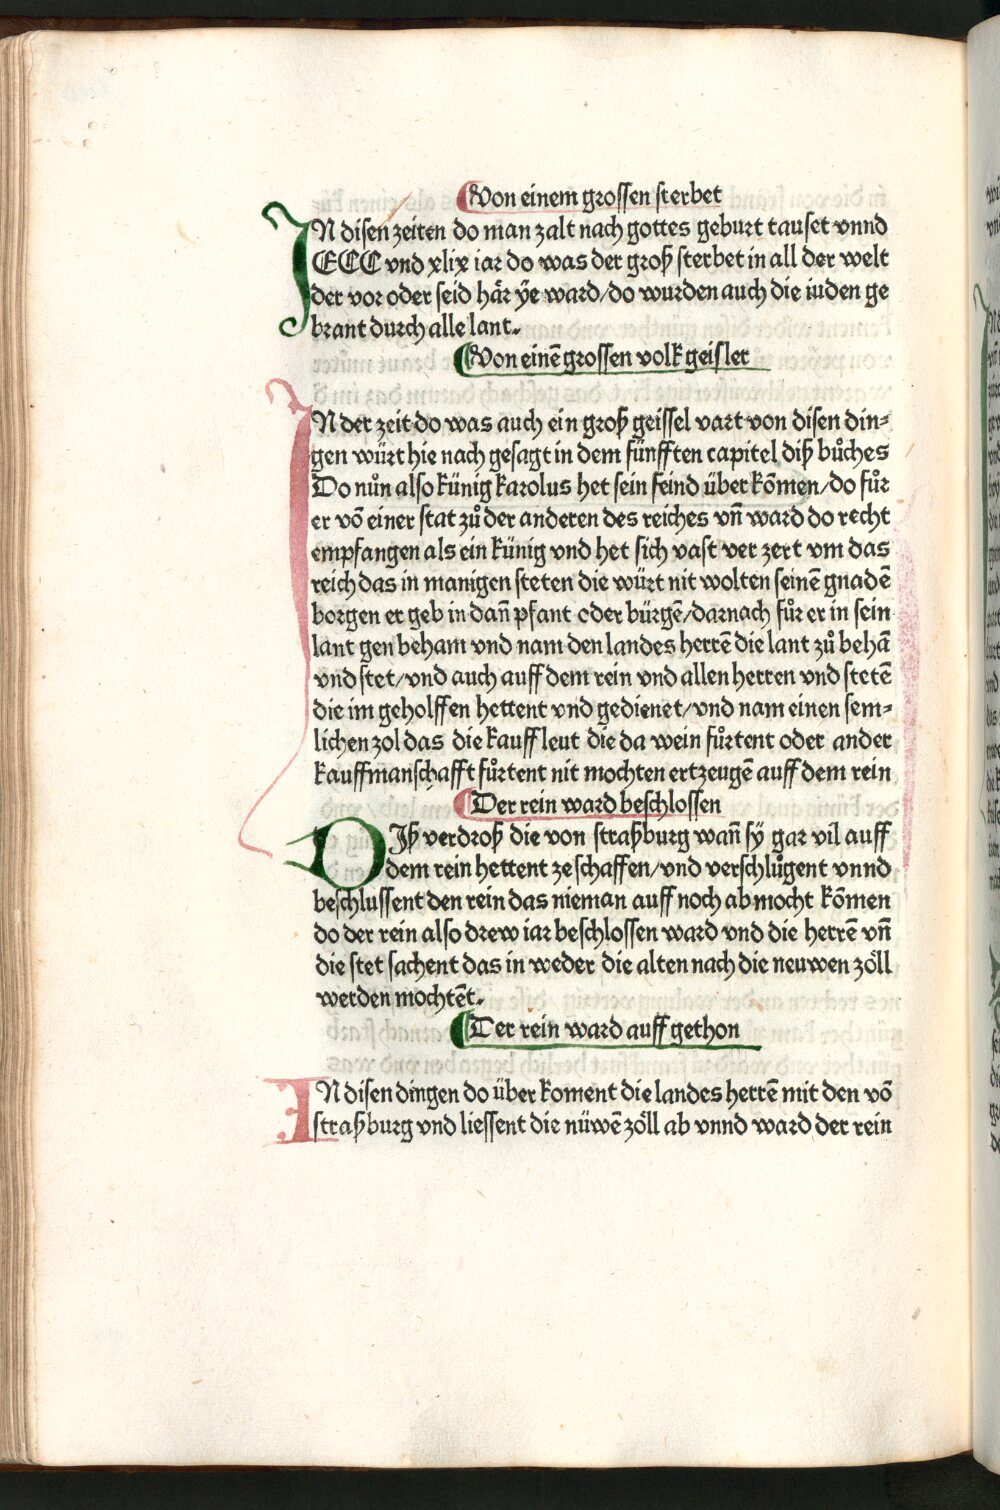 Von einem grossen sterbet
IN disen zeiten do man zalt nach gottes geburt tauset vnnd
CCC vnd xlix iar do was der groß sterbet in all der welt
der vor oder seid här ÿe ward/do wurden auch die iuden ge
brant durch alle lant.
Von einē grossen volk geisler
IN der zeit do was auch ein groß geissel vart von disen din⸗
gen würt hie nach gesagt in dem fünfften capitel diß bůches
Do nůn also künig karolus het sein feind über kōmen/do fůr
er vō einer stat zů der anderen des reiches vn̄ ward do recht
empfangen als ein künig vnd het sich vast ver zert vm das
reich das in manigen steten die würt nit wolten seinē gnadē
borgen er geb in dan̄ pfant oder bürgē/darnach fůr er in sein
lant gen beham vnd nam den landes herrē die lant zů behā
vnd stet/vnd auch auff dem rein vnd allen herren vnd stetē
die im geholffen hettent vnd gedienet/vnd nam einen sem⸗
lichen zol das die kauff leut die da wein fůrtent oder ander
kauffmanschafft fůrtent nit mochten ertzeugē auff dem rein
Der rein ward beschlossen
DIß verdroß die von straßburg wan̄ sÿ gar vil auff
dem rein hettent ze schaffen/vnd verschlůgent vnnd
beschlussent den rein das nieman auff noch ab mocht kōmen
do der rein also drew iar beschlossen ward vnd die herrē vn̄
die stet sachent das in weder die alten nach die neuwen zöll
werden mochtēt.
Der rein ward auff gethon
IN disen dingen do über koment die landes herrē mit den vō
straßburg vnd liessent die nüwē zöll ab vnnd ward der rein